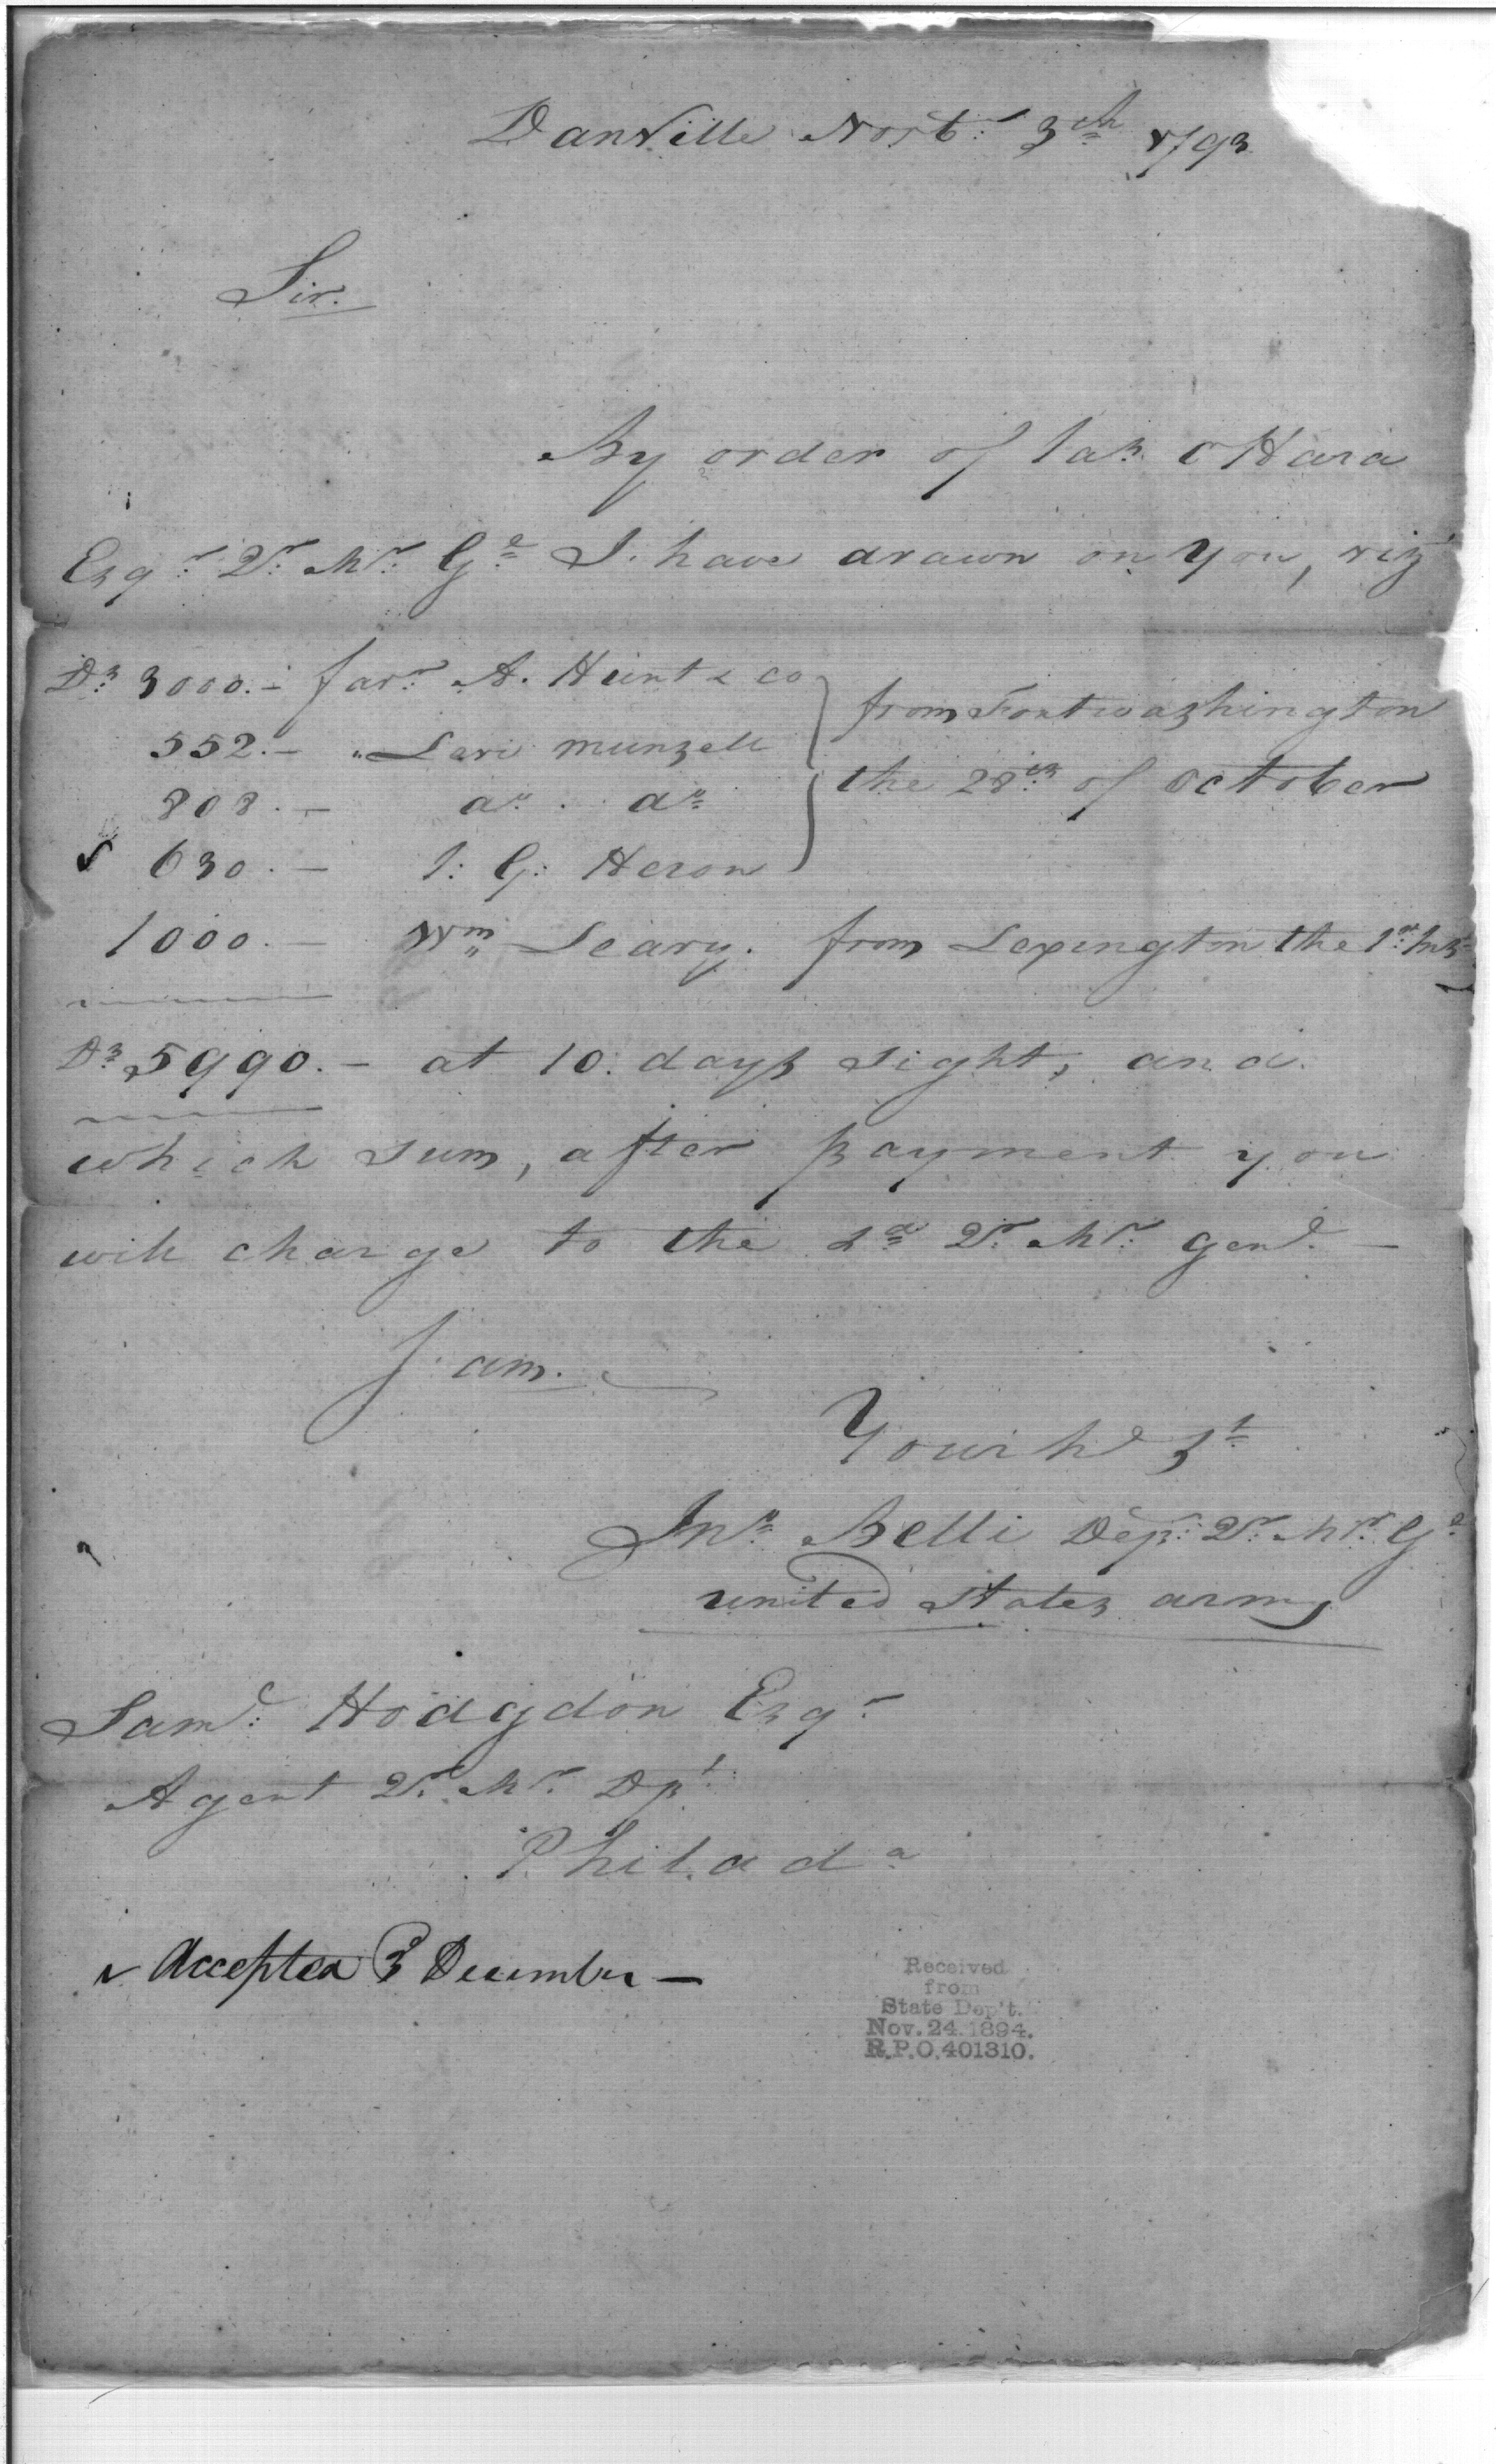 Danville Novbr. 3th 1793
Sir.
By order of Jas. OHara
Esqr. Qr. Mr. Gl. I have drawn on you, viz
Ds. 3000.- favr. A. Hunt & co
552.- " Levi munsell
808.- do. do.
630.- J: G: Heron
from Fortwashington
the 28th. of October
1000.- Wm. Leavy. from Lexington the 1st. Ins
Ds. 5990.- at 10. days Sight, and
which Sum, after payment you
will charge to the sd. Qr. Mr. Genl. -
I am.
Your he. St.
Jno. Belli Dep. Qr. Mr. Gl.
united States army
Saml. Hodgdon Esqr.
Agent Qr. Mr. Dpt.
Philada.
Accepted 3 December -
Received
from
State Dep't.
Nov. 24. 1894.
R.P.O. 401310.